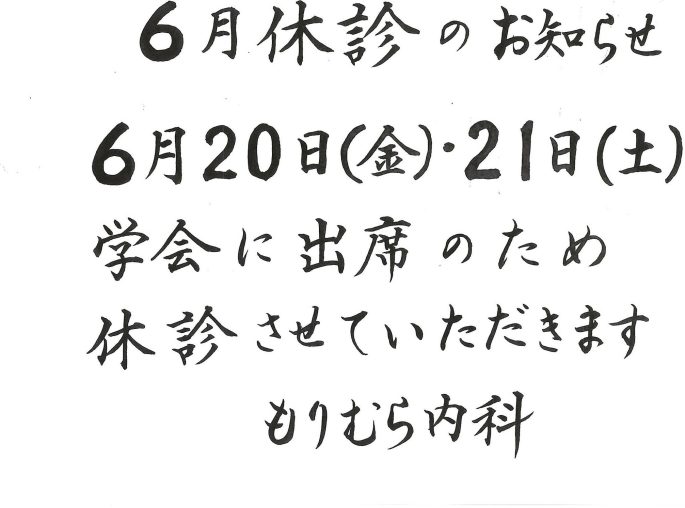 6月休診のお知らせ
6月20日(金)・21日(土)
学会に出席のため
休診させていただきます
もりむら内科